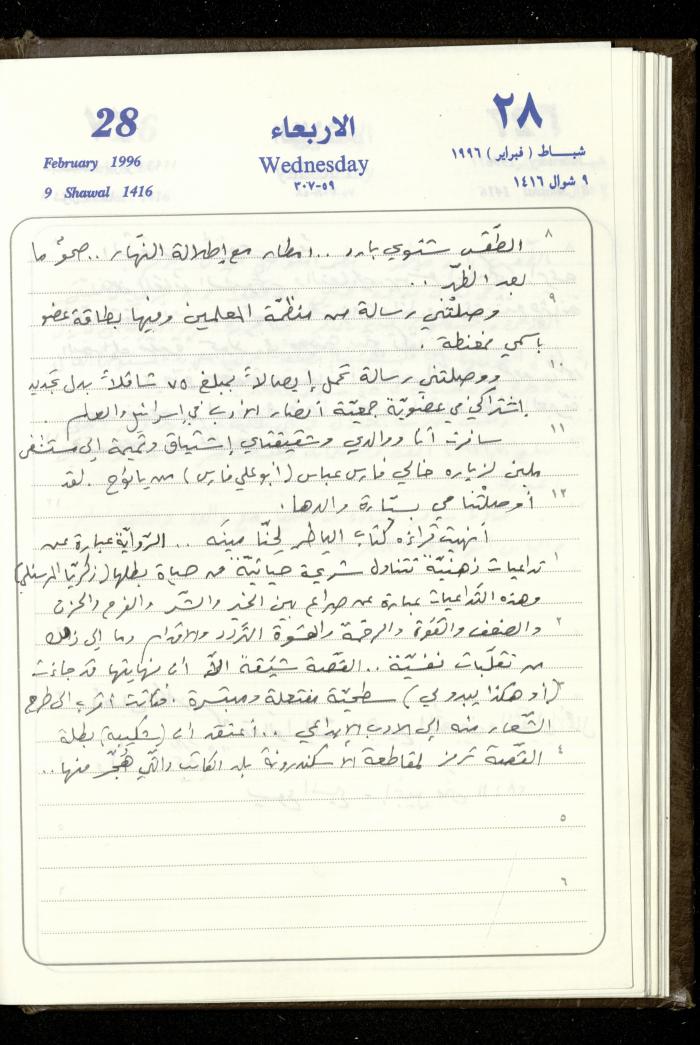 28
الاربعاء
٢٨
February 1996
Wednesday
شباط ( فبراير ) ١٩٩٦
9 Shawal 1416
٥٩-٣٠٧
٩ شوال ١٤١٦
٨
الطّقس شتوي بارد .. امطار مع إطلالة النّهار .. صحوٌ ما
بعد الظّهر ..
٩
وصلتْني رسالة من منظّمة المعلمين وفيها بطاقة عضو
باسمي ممغنطة .
١٠
ووصلتني رسالة تحمل إيصالاً بمبلغ ٧٥ شاقلاً بدل تجديد
إشتراكي في عضويّة جمعيّة أنصار الأدب في إسرائيل والعالم .
١١
سافرت أنا ووالدي وشقيقتاي إشتياق وتميمة إلى مستشفى
ملبن لزياره خالي فارس عباس (أبو علي فارس) من يانوح . لقد
١٢
أوصلتْنا مي بسيّارة والدها .
أنهيت قراءة كتاب الياطر لحنّا مينَه .. الرّواية عبارة عن
١
تداعيات ذهنيّة تتناول شريحة حياتيّة من حياة بطلها (زكريّا المرسنلي)
وهذه التّداعيات عبارة عن صراع بين الخير والشّر والفرح والحزن
٢
والضعف والقوّة والرحمة والقسوة التّردّد والاقدام وما إلى ذلك
من تقلّبات نفسيّة .. القصّة شيّقة الاّ أن نهايتها قد جاءت
٣
(أو هكذا يبدو لي) سطحيّة مفتعلة ومبتسرة . فكانت أقرب الى طرح
الشّعار منه إلى الادب الإبداعي .. أعتقد ان (شكيبة) بطلة
٤
القصّة ترمز لمقاطعة الأسكندرونة بلد الكاتب والّتي هُجّر منها ..
٥
٦